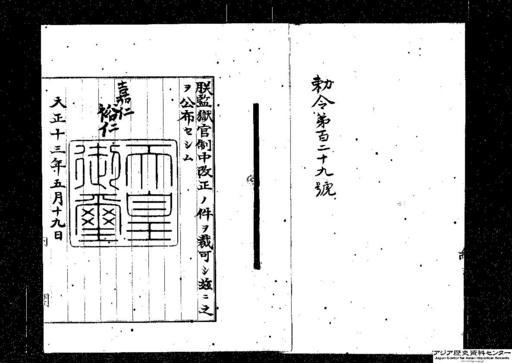 勅令第百二十九號
朕監獄官制中改正ノ件ヲ裁可シ茲ニ之
ヲ公布セシム
嘉仁
裕仁
天皇
御璽
大正十三年五月十九日
アジア歴史資料センター
Japan Center for Asian Historical Records